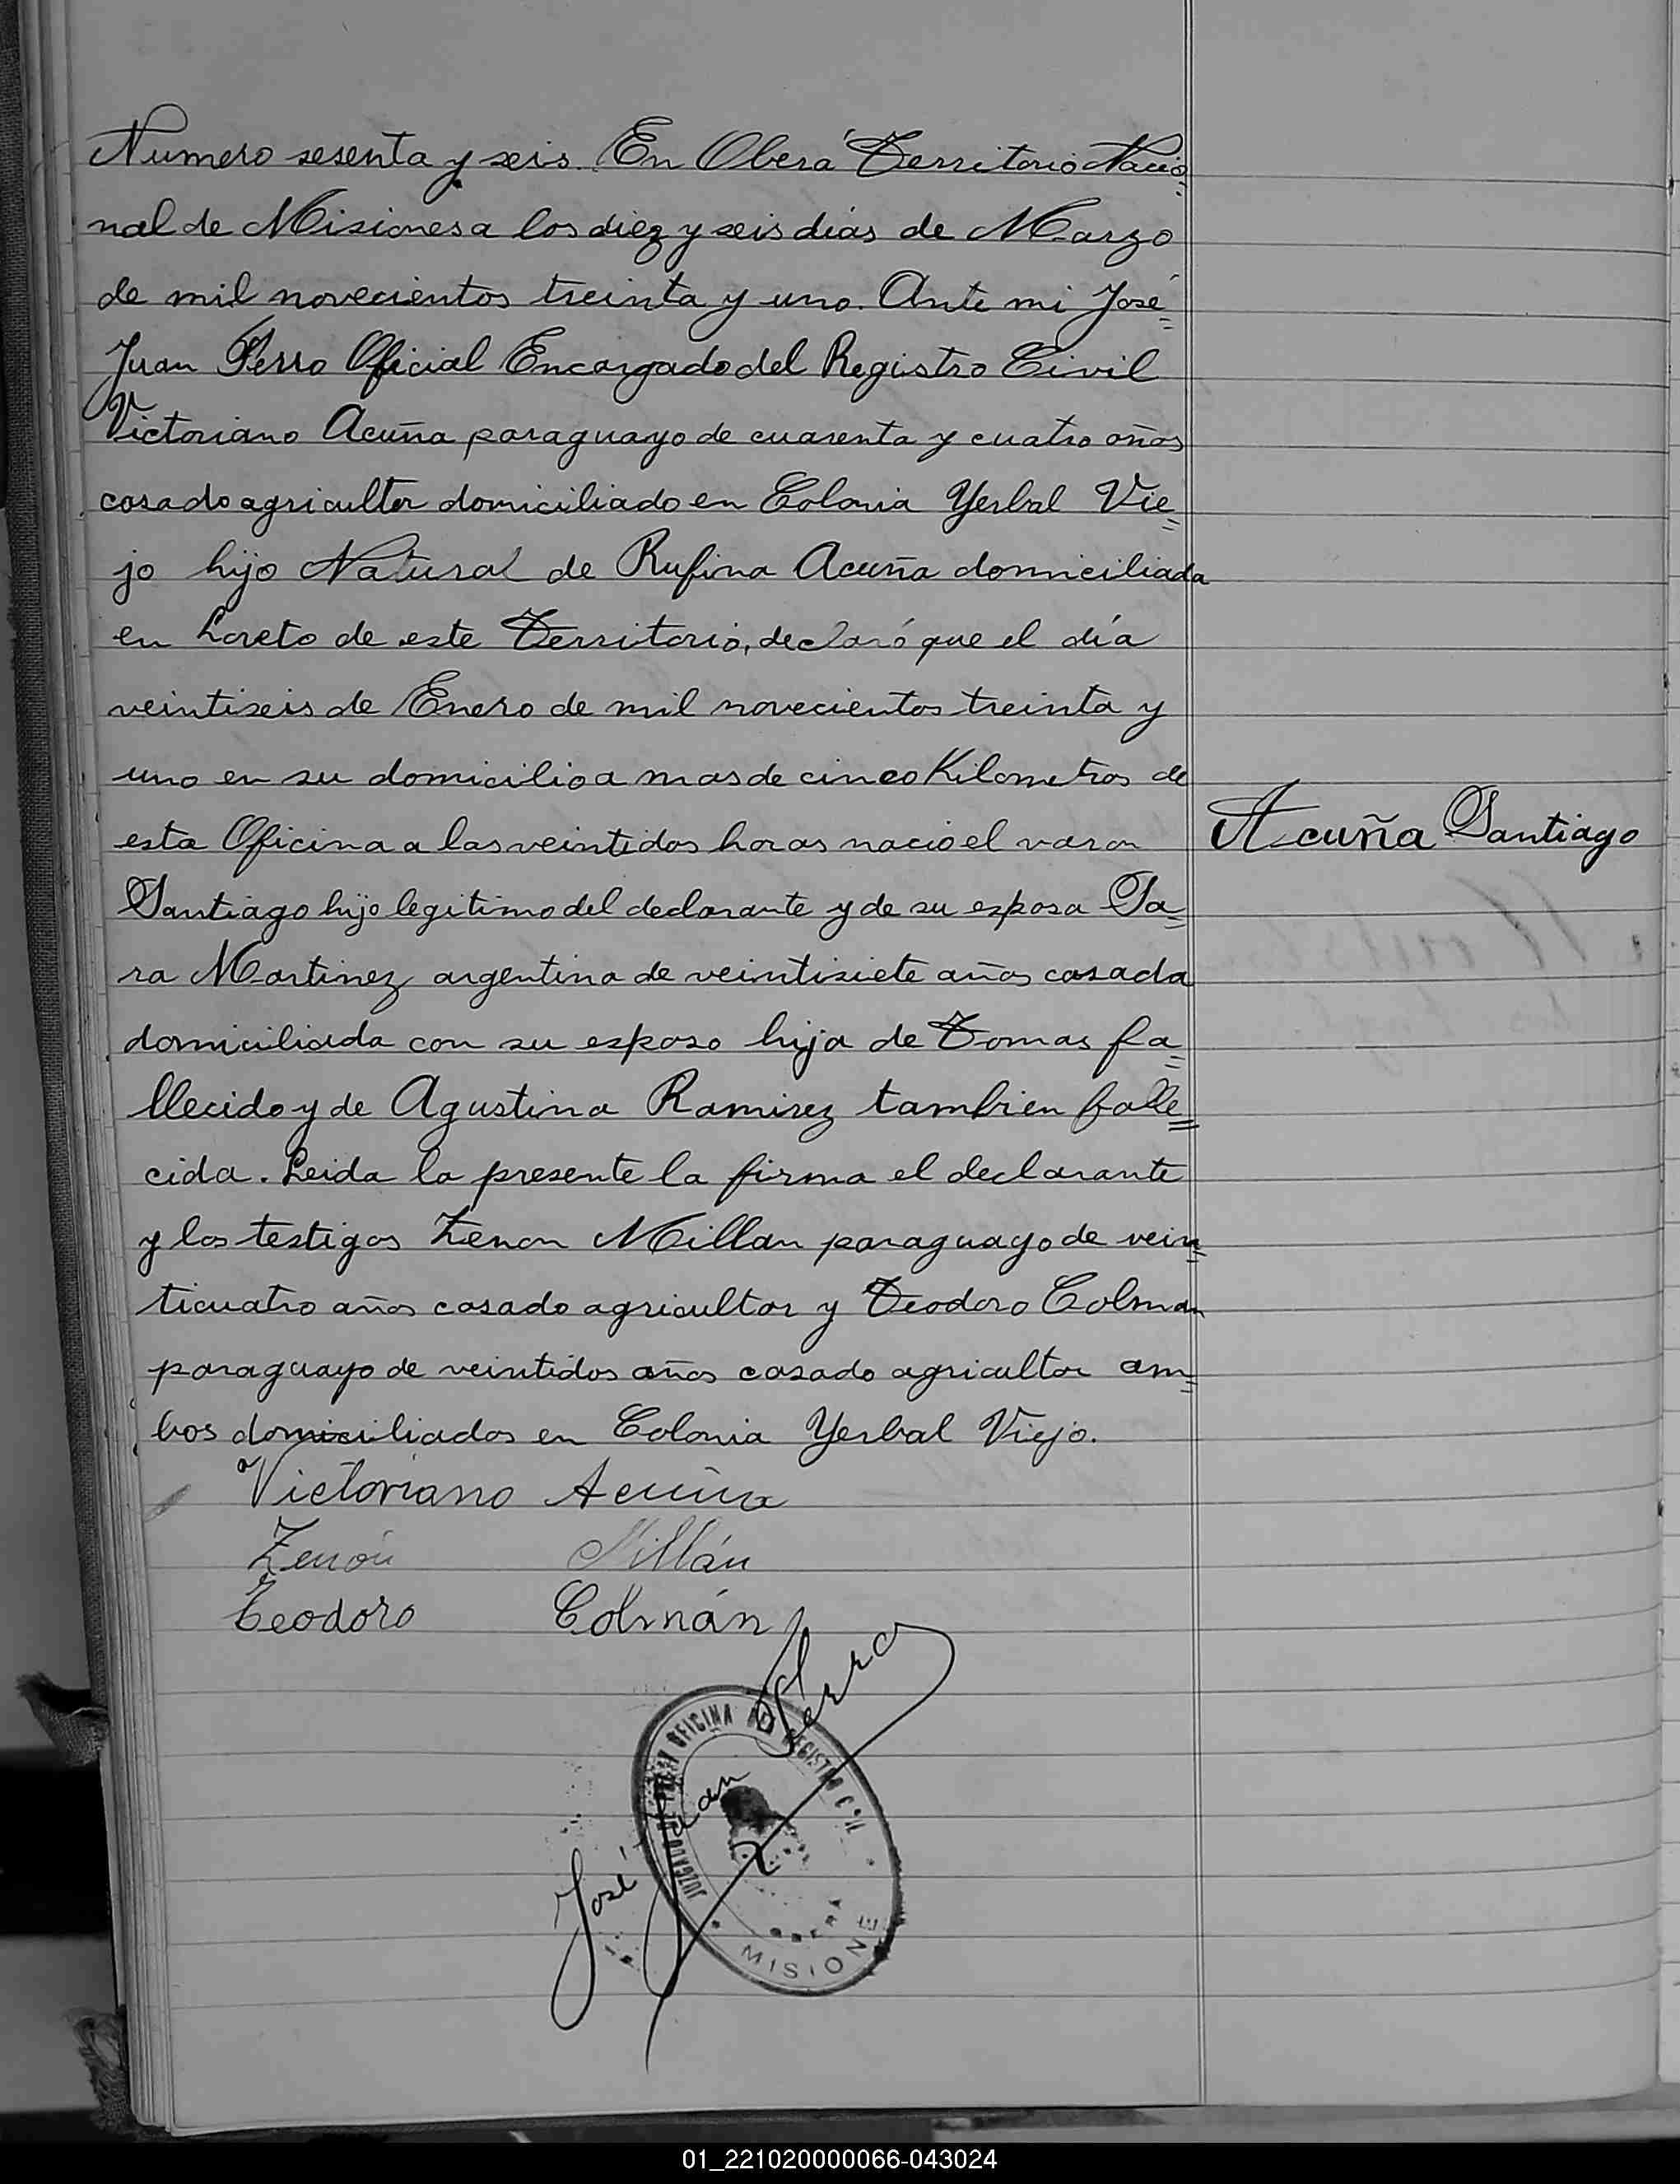 Numero sesenta y seis. En Oberá Territorio Nacio=
nal de Misiones a los diez y seis días de Marzo
de mil novecientos treinta y uno. Ante mi José=
Juan Ferro Oficial Encargado del Registro Civil
Victoriano Acuña paraguayo de cuarenta y cuatro años
casado agricultor domiciliado en Colonia Yerbal Vie=
jo hijo Natural de Rufina Acuña domiciliada
en Loreto de este Territorio, declaró que el día
veintiseis de Enero de mil novecientos treinta y
uno en su domicilio a mas de cinco Kilometros de
esta Oficina a las veintidos horas nacio el varon
Acuña Santiago
Santiago hijo legitimo del declarante y de su esposa Sa=
ra Martinez argentina de veintisiete años casada
domiciliada con su esposo hija de Tomas fa=
llecido y de Agustina Ramirez tambien falle=
cida. Leida la presente la firma el declarante
y los testigos Zenon Millan paraguayo de vein=
ticuatro años casado agricultor y Teodoro Colman
paraguayo de veintidos años casado agricultor am=
bos domiciliados en Colonia Yerbal Viejo.
Victoriano Acuña
Zenón Millán
Teodoro Colmán
José Juan Ferro
JUZGADO DE PAZ Y OFICINA DEL REGISTRO CIVIL
OBERA
MISIONE
01_221020000066-043024